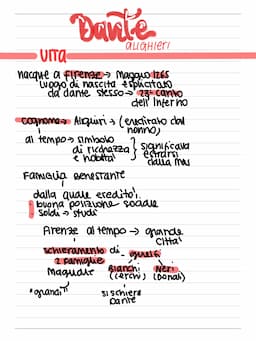 Dante
ALIGHIERI
VITA
nacque a FIRENZE → Maggio 1265
luogo di nascita esplicitato
da dante stesso → 23° canto
dell'Inferno
Cognome → Aligieri → (ereditato dal nonno)
al tempo → simbolo
di ricchezza
e nobiltà
significava
estrarsi
dalla
FAMIGLIA BENESTANTE
dalla quale ereditò:
buona posizione sociale
soldi → studi
Firenze al tempo → grande
città
schieramento di guelfi
2 famiglie
Magnate Bianchi Neri
(cerchi) (Donati)
"grandi"
si schiera
Dante